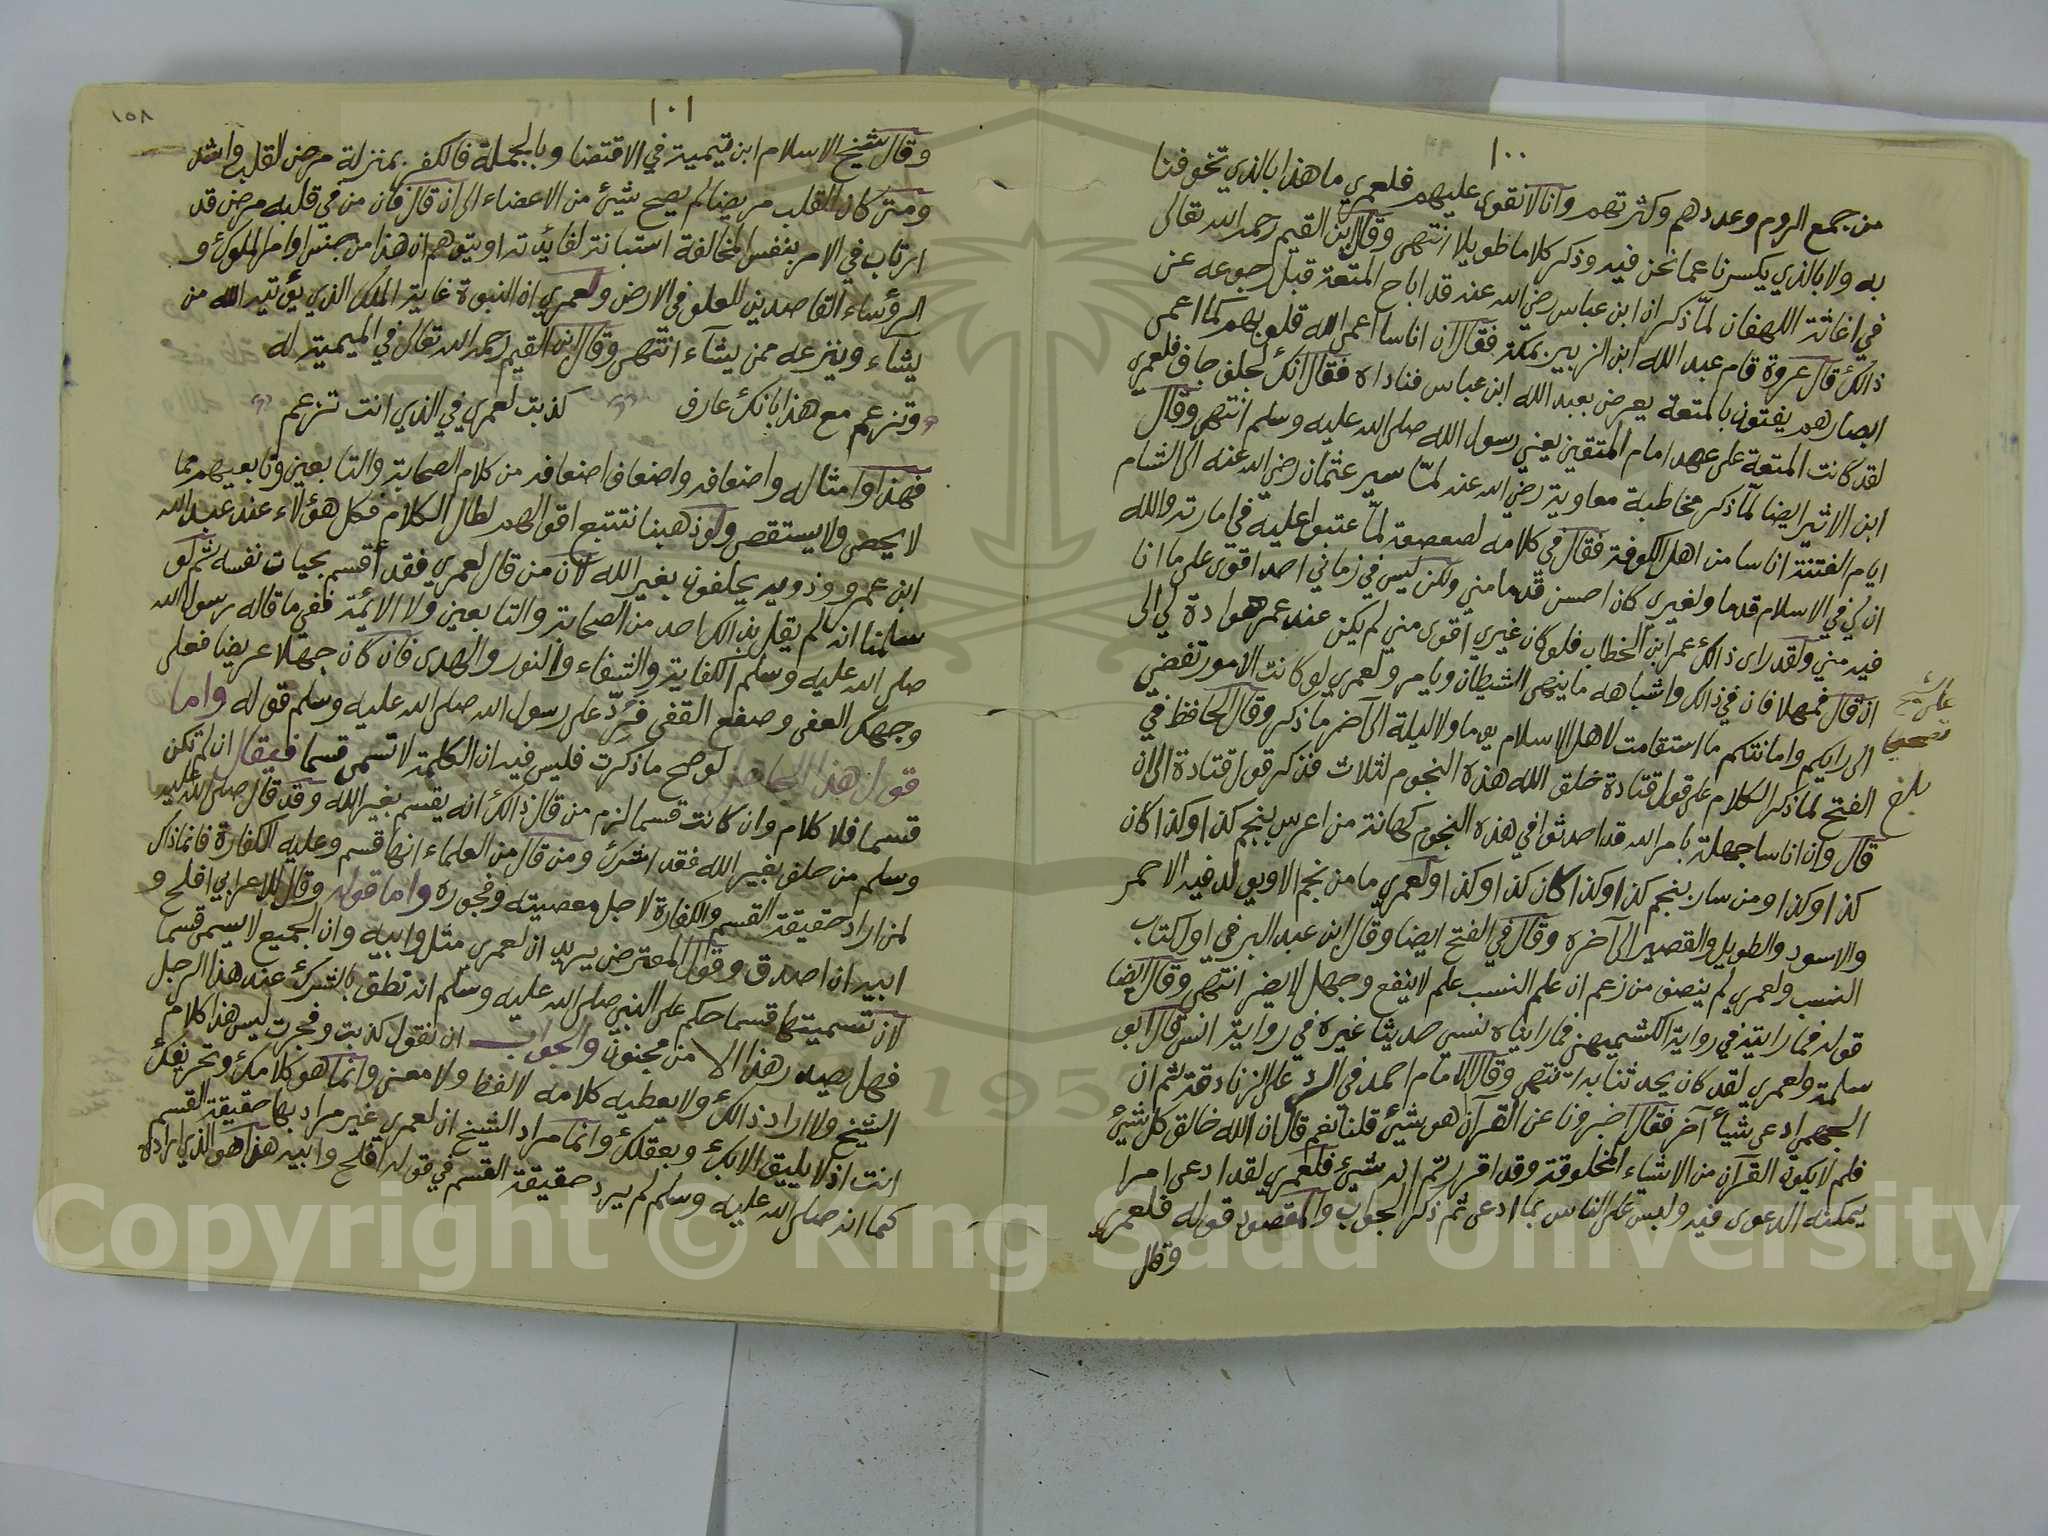 ١٠٠
من جمع الروم وعددهم وكثرتهم وانا لا نقوى عليهم فلعمري ما هذا بالذي تخوفنا
به ولا بالذي يكسرنا عما نحن فيه وذكر كلاما طويلا انتهى وقال ابن القيم رحمه الله تعالى
في اغاثة اللهفان لما ذكر ان ابن عباس رضي الله عنه قد اباح المتعة قبل رجوعه عن
ذالك قال عروة قام عبد الله ابن الزبير بمكة فقال ان اناسا اعمى الله قلوبهم كما اعمى
ابصارهم يفتون بالمتعة يعرض بعبد الله ابن عباس فناداه فقال انك لجلف جاف فلعمري
لقد كانت المتعة على عهد امام المتقين يعني رسول الله صلى الله عليه وسلم انتهى وقال
ابن الاثير ايضا لما ذكر مخاطبة معاوية رضي الله عنه لمّا سير عثمان رضي الله عنه الى الشام
ايام الفتنة اناسا من اهل الكوفة فقال في كلامه لصعصعة لمّا عتبوا عليه في امارته والله
ان لي في الاسلام قدما ولغيري كان احسن قدما مني ولكن ليس في زماني احد اقوى على ما انا
فيه مني ولقد راى ذالك عمر ابن الخطاب فلو كان غيري اقوى مني لم يكن عند عمر هوادة لي الى
ان قال فمهلا فان في ذالك واشباهه ما ينهى الشيطان ويامر ولعمري لو كانت الامور تفضي
الى رايكم وامانتكم ما استقامت لاهل الاسلام يوما ولا ليلة الى آخر ما ذكر وقال الحافظ في
الفتح لما ذكر الكلام على قول قتادة خلق الله هذه النجوم لثلاث فذكر قول قتادة الى ان
قال وان اناسا جهلة بامر الله قد احدثوا في هذه النجوم كهانة من اعرس بنجم كذا وكذا كان
كذا وكذا ومن سار بنجم كذا وكذا كان كذا وكذا ولعمري ما من نجم الا ويولد فيه الاحمر
والاسود والطويل والقصير الى آخره وقال في الفتح ايضا وقال ابن عبد البر في اول كتاب
النسب ولعمري لم ينصف من زعم ان علم النسب علم لا ينفع وجهل لا يضر انتهى وقال ايضا
قوله فما رايته في رواية الكشميهني فما رايناه نسي حديثا غيره في رواية انس قال ابو
سلمة ولعمري لقد كان يحدثنا به انتهى وقال الامام احمد في الرد على الزنادقة ثم ان
الجهمي ادعى شيأ آخر فقال اخبرونا عن القرآن هو شيئ قلنا نعم قال ان الله خالق كل شيئ
فلم لا يكون القرآن من الاشياء المخلوقة وقد اقررتم انه شيئ فلعمري لقد ادعى امرا
يمكنه الدعوى فيه ولبس على الناس بما ادعى ثم ذكر الجواب والمقصود قوله فلعمري
وقال
بلغ
١٠١
١٥٨
وقال شيخ الاسلام ابن تيمية في الاقتضا وبالجملة فالكفر بمنزلة مرض القلب واشد
ومتى كان القلب مريضا لم يصح شيئ من الاعضاء الى ان قال فان من في قلبه مرض قد
ارتاب في الامر بنفس المخالفة استبانة لفائدته او يتوهم ان هذا من جنس اوامر الملوك و
الرؤساء القاصدين للعلو في الارض ولعمري ان النبوة غاية الملك الذي يؤتيه الله من
يشاء وينزعه ممن يشاء انتهى وقال ابن القيم رحمه الله تعالى في الميمية له
وتزعم مع هذا بانك عارف كذبت لعمري في الذي انت تزعم
فهذا وامثاله واضعافه واضعاف اضعافه من كلام الصحابة والتابعين وتابعيهم مما
لا يحصى ولا يستقصى ولو ذهبنا نتتبع اقوالهم لطال الكلام فكل هؤلاء عند عبد الله
ابن عمرو وذويه يحلفون بغير الله لان من قال لعمري فقد أقسم بحيات نفسه ثم لو
سلمنا انه لم يقل بذالك احد من الصحابة والتابعين ولا الائمة ففي ما قاله رسول الله
صلى الله عليه وسلم الكفاية والشفاء والنور والهدى فان كان جهلا عريضا فعلى
وجهك العفى وصفع القفى فرُدّ على رسول الله صلى الله عليه وسلم قوله واما
قول هذا الجاهل لو صح ما ذكرت فليس فيه ان الكلمة لا تسمى قسما فيقال ان لم تكن
قسما فلا كلام وان كانت قسما لزم من قال ذالك انه يقسم بغير الله وقد قال صلى الله عليه
وسلم من حلف بغير الله فقد اشرك ومن قال من العلماء انها قسم وعليه الكفارة فانما ذاك
لمن اراد حقيقة القسم والكفارة لاجل معصيته وفجوره واما قوله وقال للاعرابي افلح و
ابيه ان اصدق وقول المعترض يريد ان لعمري مثل وابيه وان الجميع لا يسمى قسما
لان تسميتها قسما حكم على النبي صلى الله عليه وسلم انه نطق بالشرك عند هذا الرجل
فهل يصدر هذا الا من مجنون والجواب ان نقول كذبت وفجرت ليس هذا كلام
الشيخ ولا اراد ذالك ولا يعطيه كلامه لا لفظا ولا معنى وانما هو كلامك وتحريفك
انت اذ لا يليق الا بك وبعقلك وانما مراد الشيخ ان لعمري غير مراد بها حقيقة القسم
كما انه صلى الله عليه وسلم لم يرد حقيقة القسم في قوله افلح وابيه هذا هو الذي اراده
Copyright © King Saud University
195